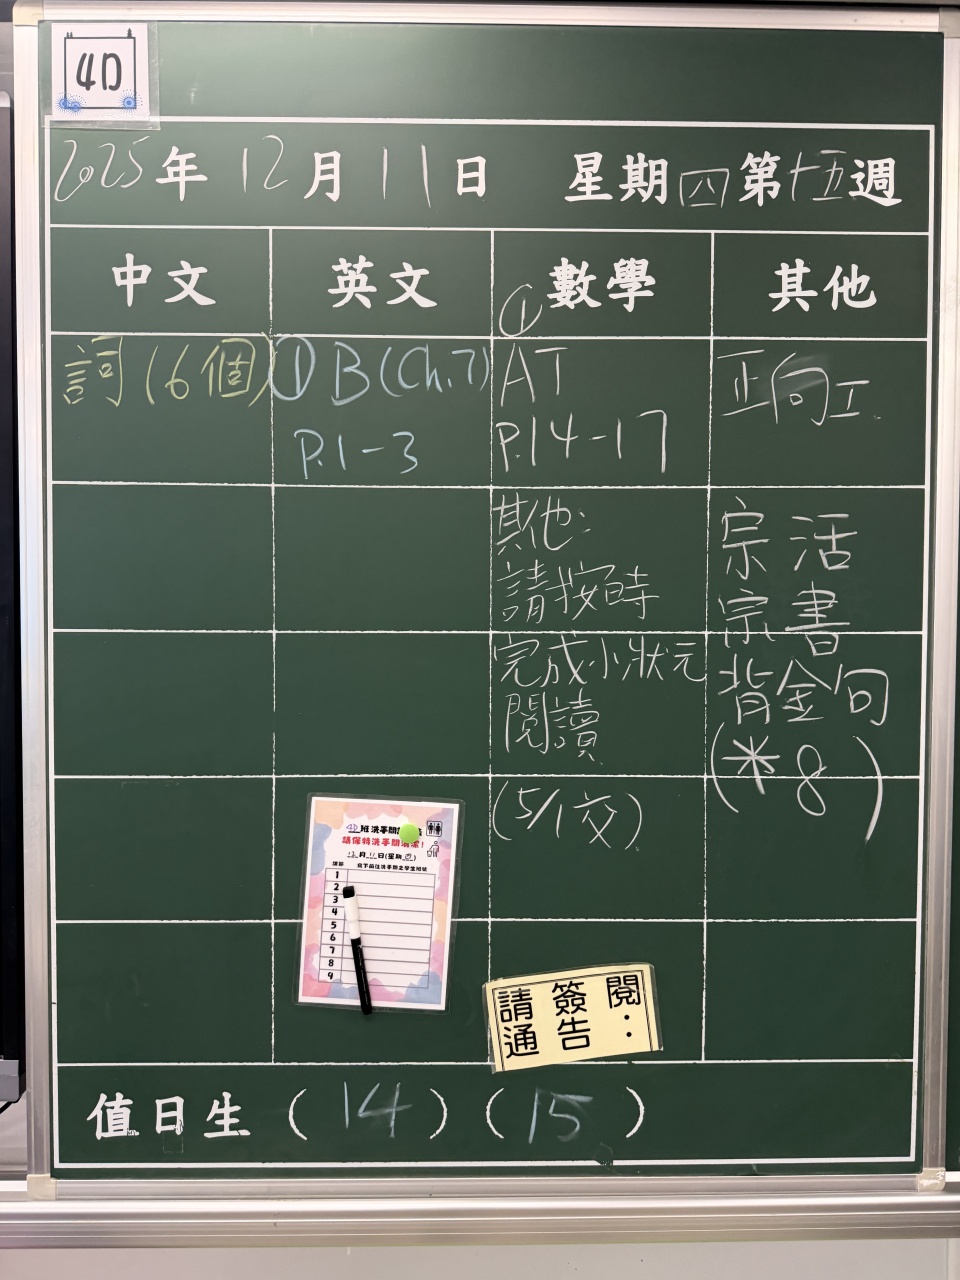 4D
2025年12月11日 星期四第十五週
中文 英文 數學 其他
詞(6個)
①B(Ch.7)
P.1-3
①
AT
P.14-17
其他:
請按時
完成小狀元
閱讀
(5/1交)
正向工.
宗活
宗書
背金句
(*8)
4D班洗手間
請保持洗手間清潔!
12月11日(星期四)
1
2
3
4
5
6
7
8
9
請簽閱
通告:
值日生(14)(15)